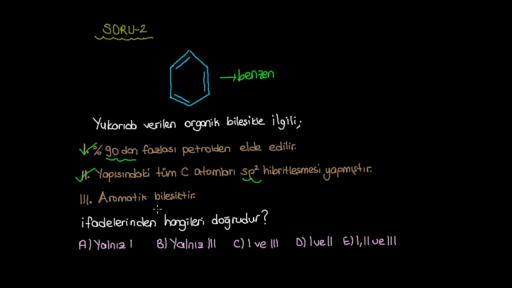 SORU-2
→benzen
Yukarıda verilen organik bileşikle ilgili;
I. % 90'dan fazlası petrolden elde edilir.
II. Yapısındaki tüm C atomları sp² hibritleşmesi yapmıştır.
III. Aromatik bileşiktir.
ifadelerinden hangileri doğrudur?
A) Yalnız I B) Yalnız III C) I ve III D) I ve II E) I, II ve III